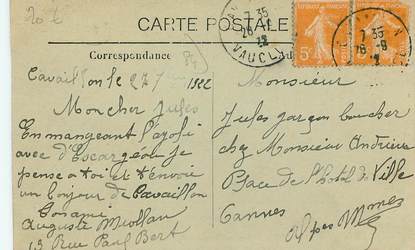 20 €
CARTE POSTALE
Correspondance
VAUCLUSE
7 35
28 -8
7 35
28 -8
5c
Cavaillon le 27 1922
Mon cher Jules
En mangeant l'ayoli
avec d'Escargéou je
pense a toi et t'envoi
un bonjour de Cavaillon
Ton ami
Auguste Miollan
13 Rue Paul Bert
Monsieur
Jules garçon boucher
chez Monsieur Andrieu
Place de l'hotel de Ville
Cannes
Alpes Mmes